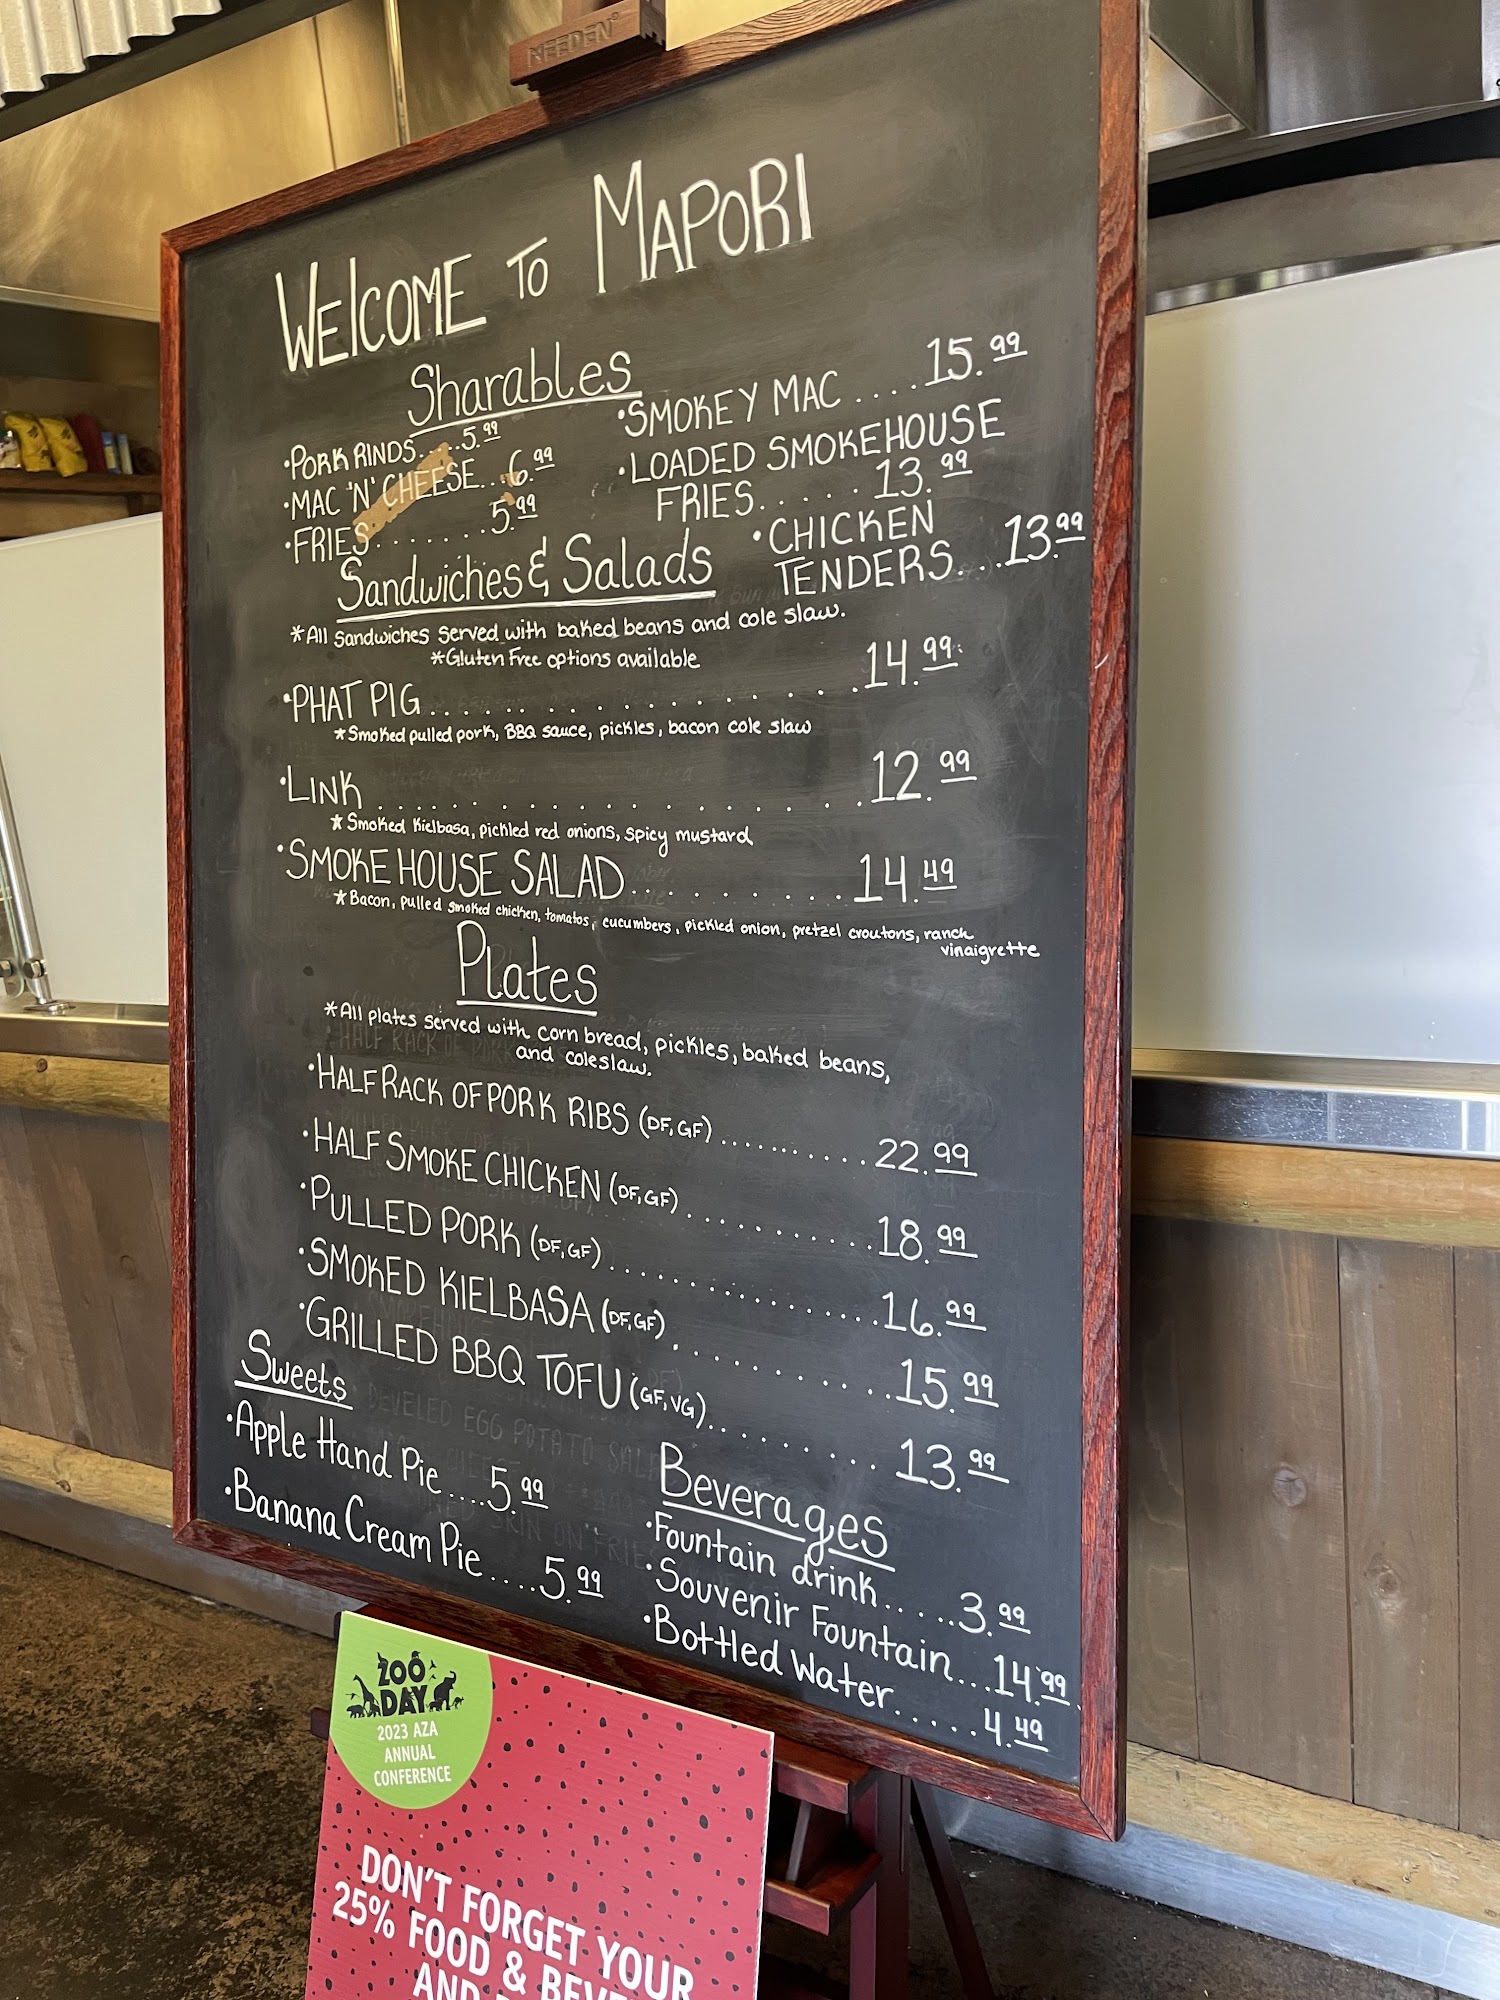 NEEDEN
WELCOME TO MAPORI
Sharables
•PORK RINDS....5.99
•MAC 'N' CHEESE...6.99
•FRIES.......5.99
•SMOKEY MAC....15.99
•LOADED SMOKEHOUSE
FRIES.....13.99
•CHICKEN
TENDERS...13.99
Sandwiches & Salads
*All Sandwiches Served with baked beans and cole slaw.
*Gluten Free options available
•PHAT PIG..................14.99
*Smoked pulled pork, BBQ sauce, pickles, bacon cole slaw
•LINK....................12.99
*Smoked Kielbasa, pickled red onions, spicy mustard
•SMOKEHOUSE SALAD..........14.49
*Bacon, pulled smoked chicken, tomatos, cucumbers, pickled onion, pretzel croutons, ranch
vinaigrette
Plates
*All plates served with corn bread, pickles, baked beans,
and coleslaw.
•HALF RACK OF PORK RIBS (DF,GF)............22.99
•HALF SMOKE CHICKEN (DF,GF)...........18.99
•PULLED PORK (DF,GF)................16.99
•SMOKED KIELBASA (DF,GF)...........15.99
•GRILLED BBQ TOFU (GF,VG).........13.99
Sweets
•Apple Hand Pie....5.99
•Banana Cream Pie....5.99
Beverages
•Fountain drink.....3.99
•Souvenir Fountain...14.99
•Bottled Water.....4.49
ZOO
DAY
2023 AZA
ANNUAL
CONFERENCE
DON'T FORGET YOUR
25% FOOD &
AND